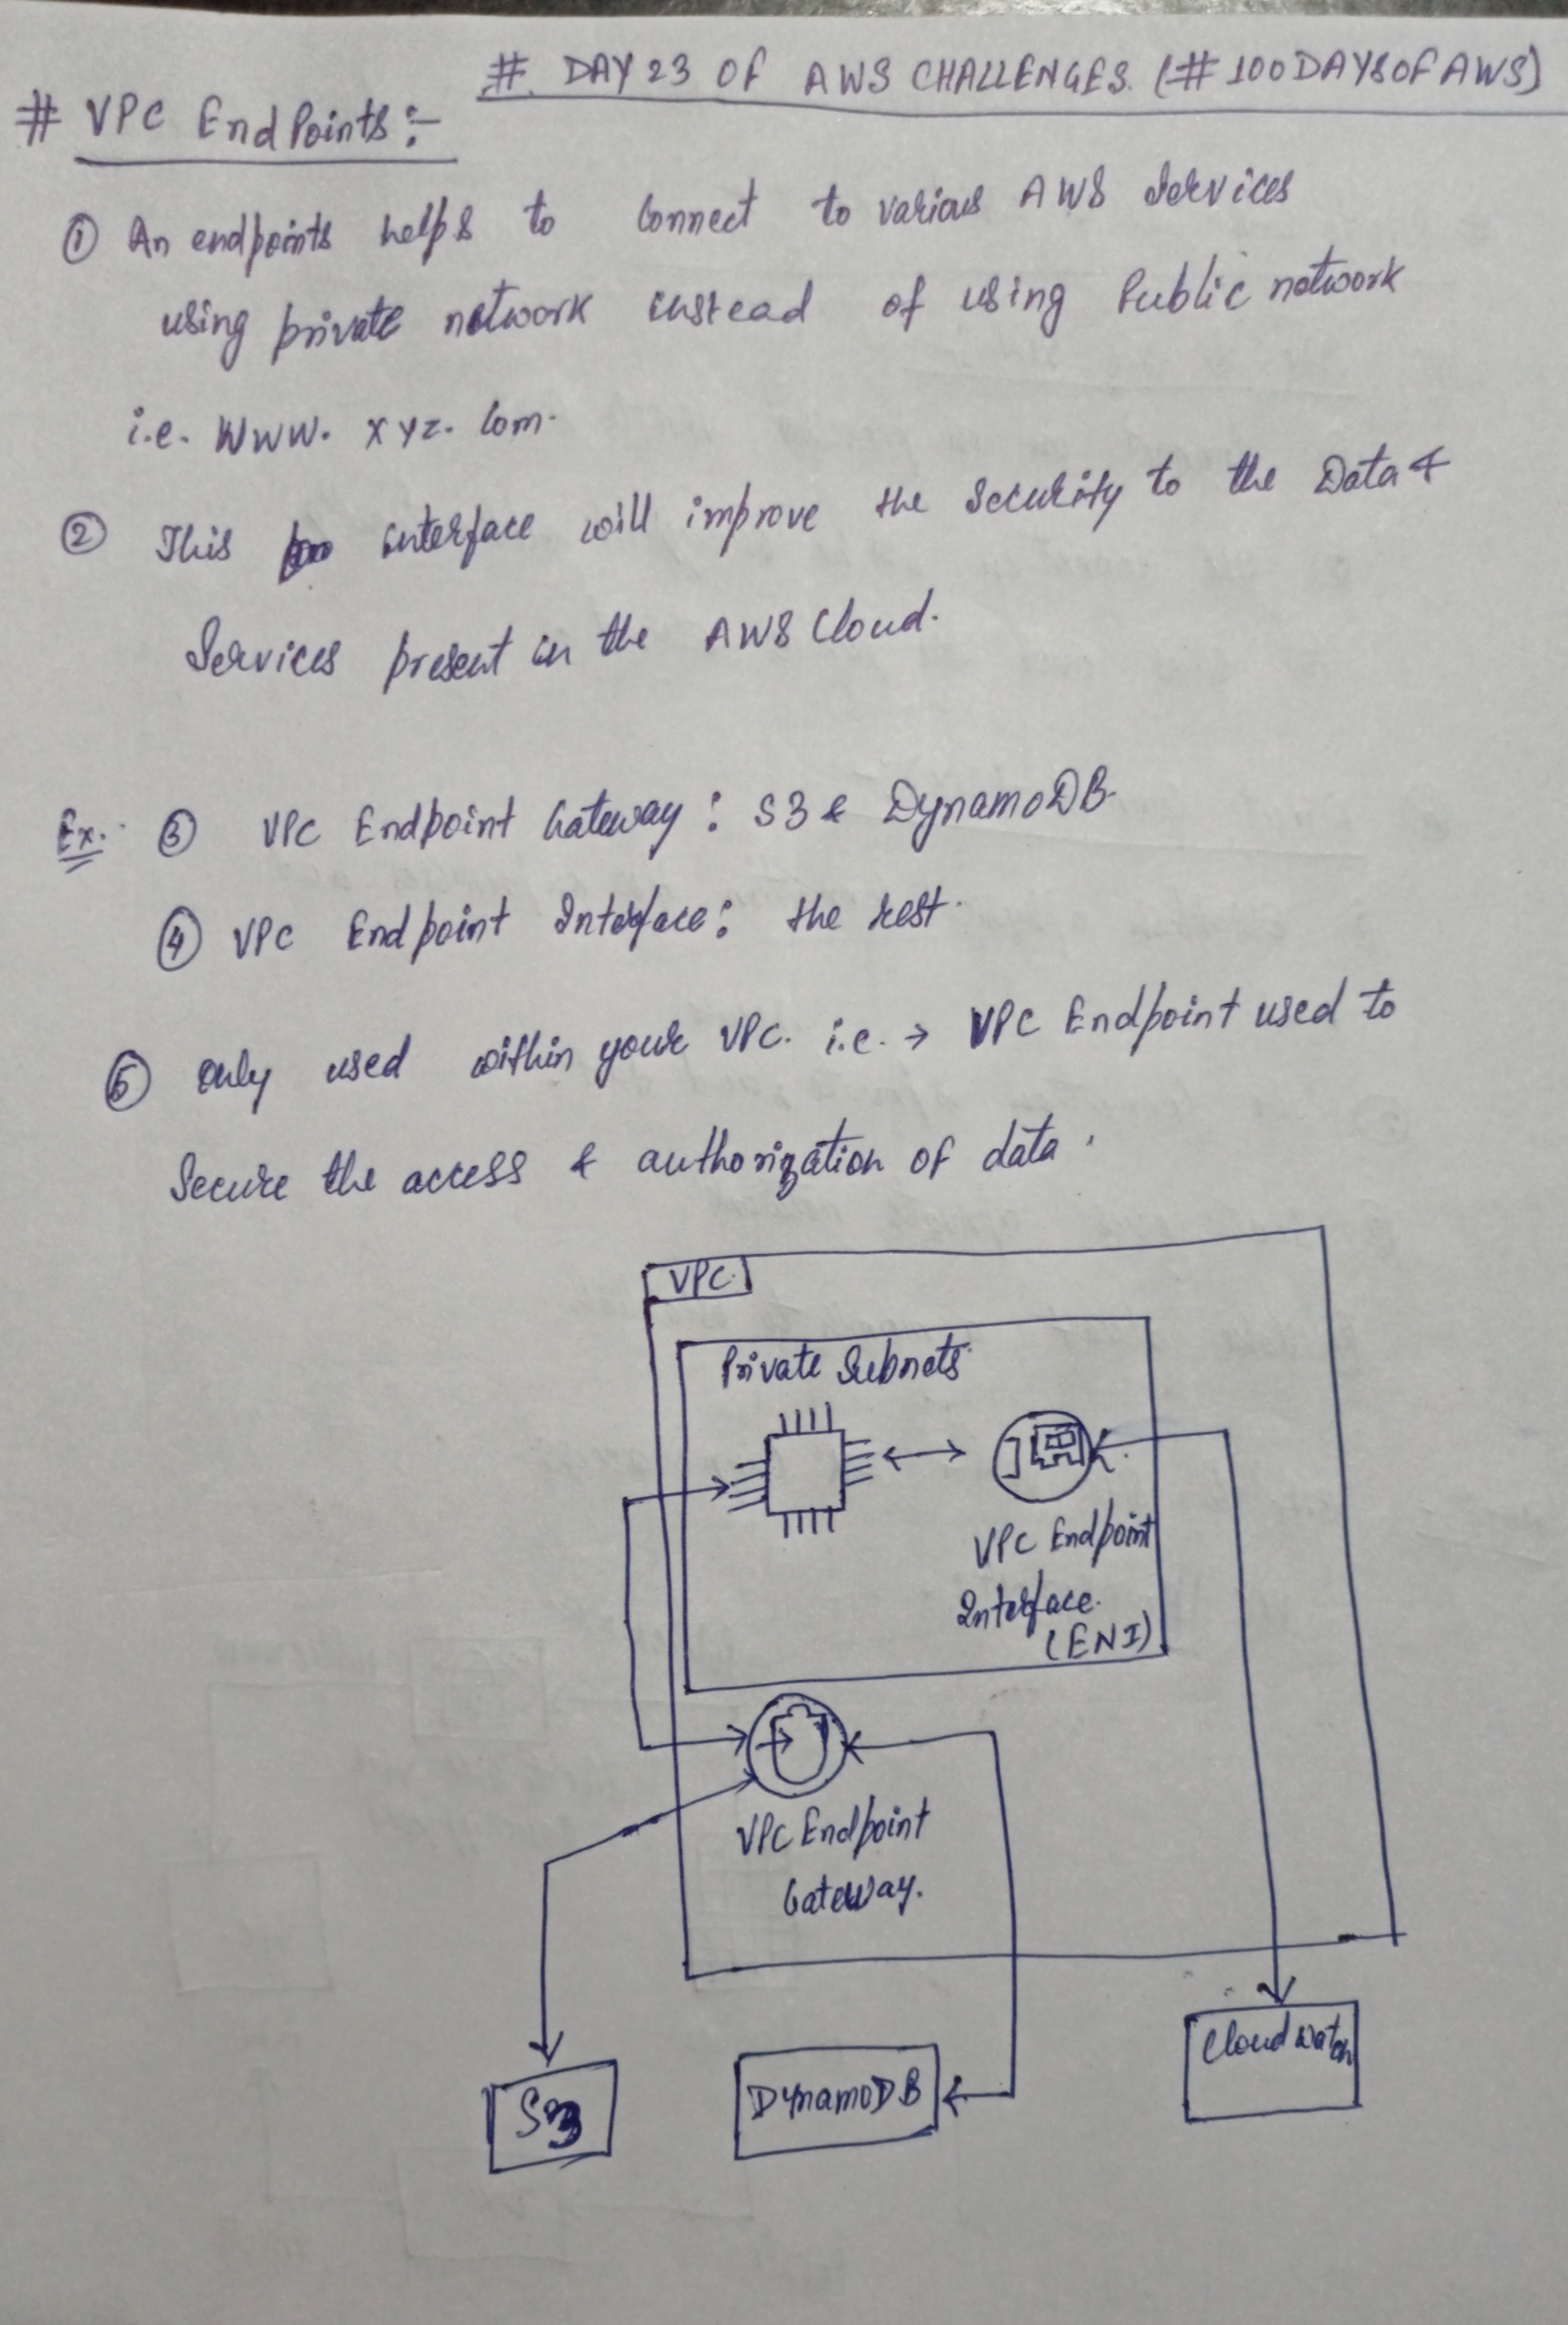 # DAY 23 OF AWS CHALLENGES. (#100DAYSOFAWS)
# VPC EndPoints :-
① An endpoints helps to Connect to various AWS Services
using private network instead of using Public network
i.e. WWW. XYZ. Com.
② This interface will improve the Security to the Data &
Services present in the AWS Cloud.
Ex. ③ VPC Endpoint Gateway : S3 & DynamoDB
④ VPC Endpoint Interface : the rest.
⑤ Only used within your VPC. i.e. → VPC Endpoint used to
Secure the access & authorization of data.
VPC.
Private Subnets
VPC Endpoint
Interface.
(ENI)
VPC Endpoint
Gateway.
S3
DynamoDB
Cloud watch